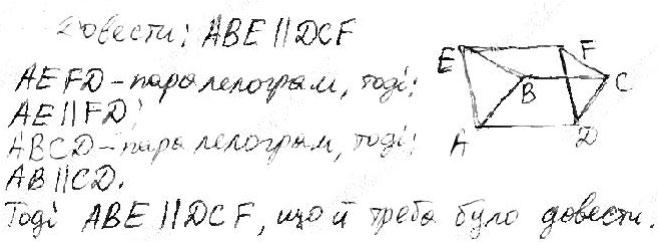 Довести: ABE || DCF
AEFD – паралелограм, тоді:
AE || FD;
ABCD – паралелограм, тоді:
AB || CD.
Тоді ABE || DCF, що й треба було довести.
E F B C A D